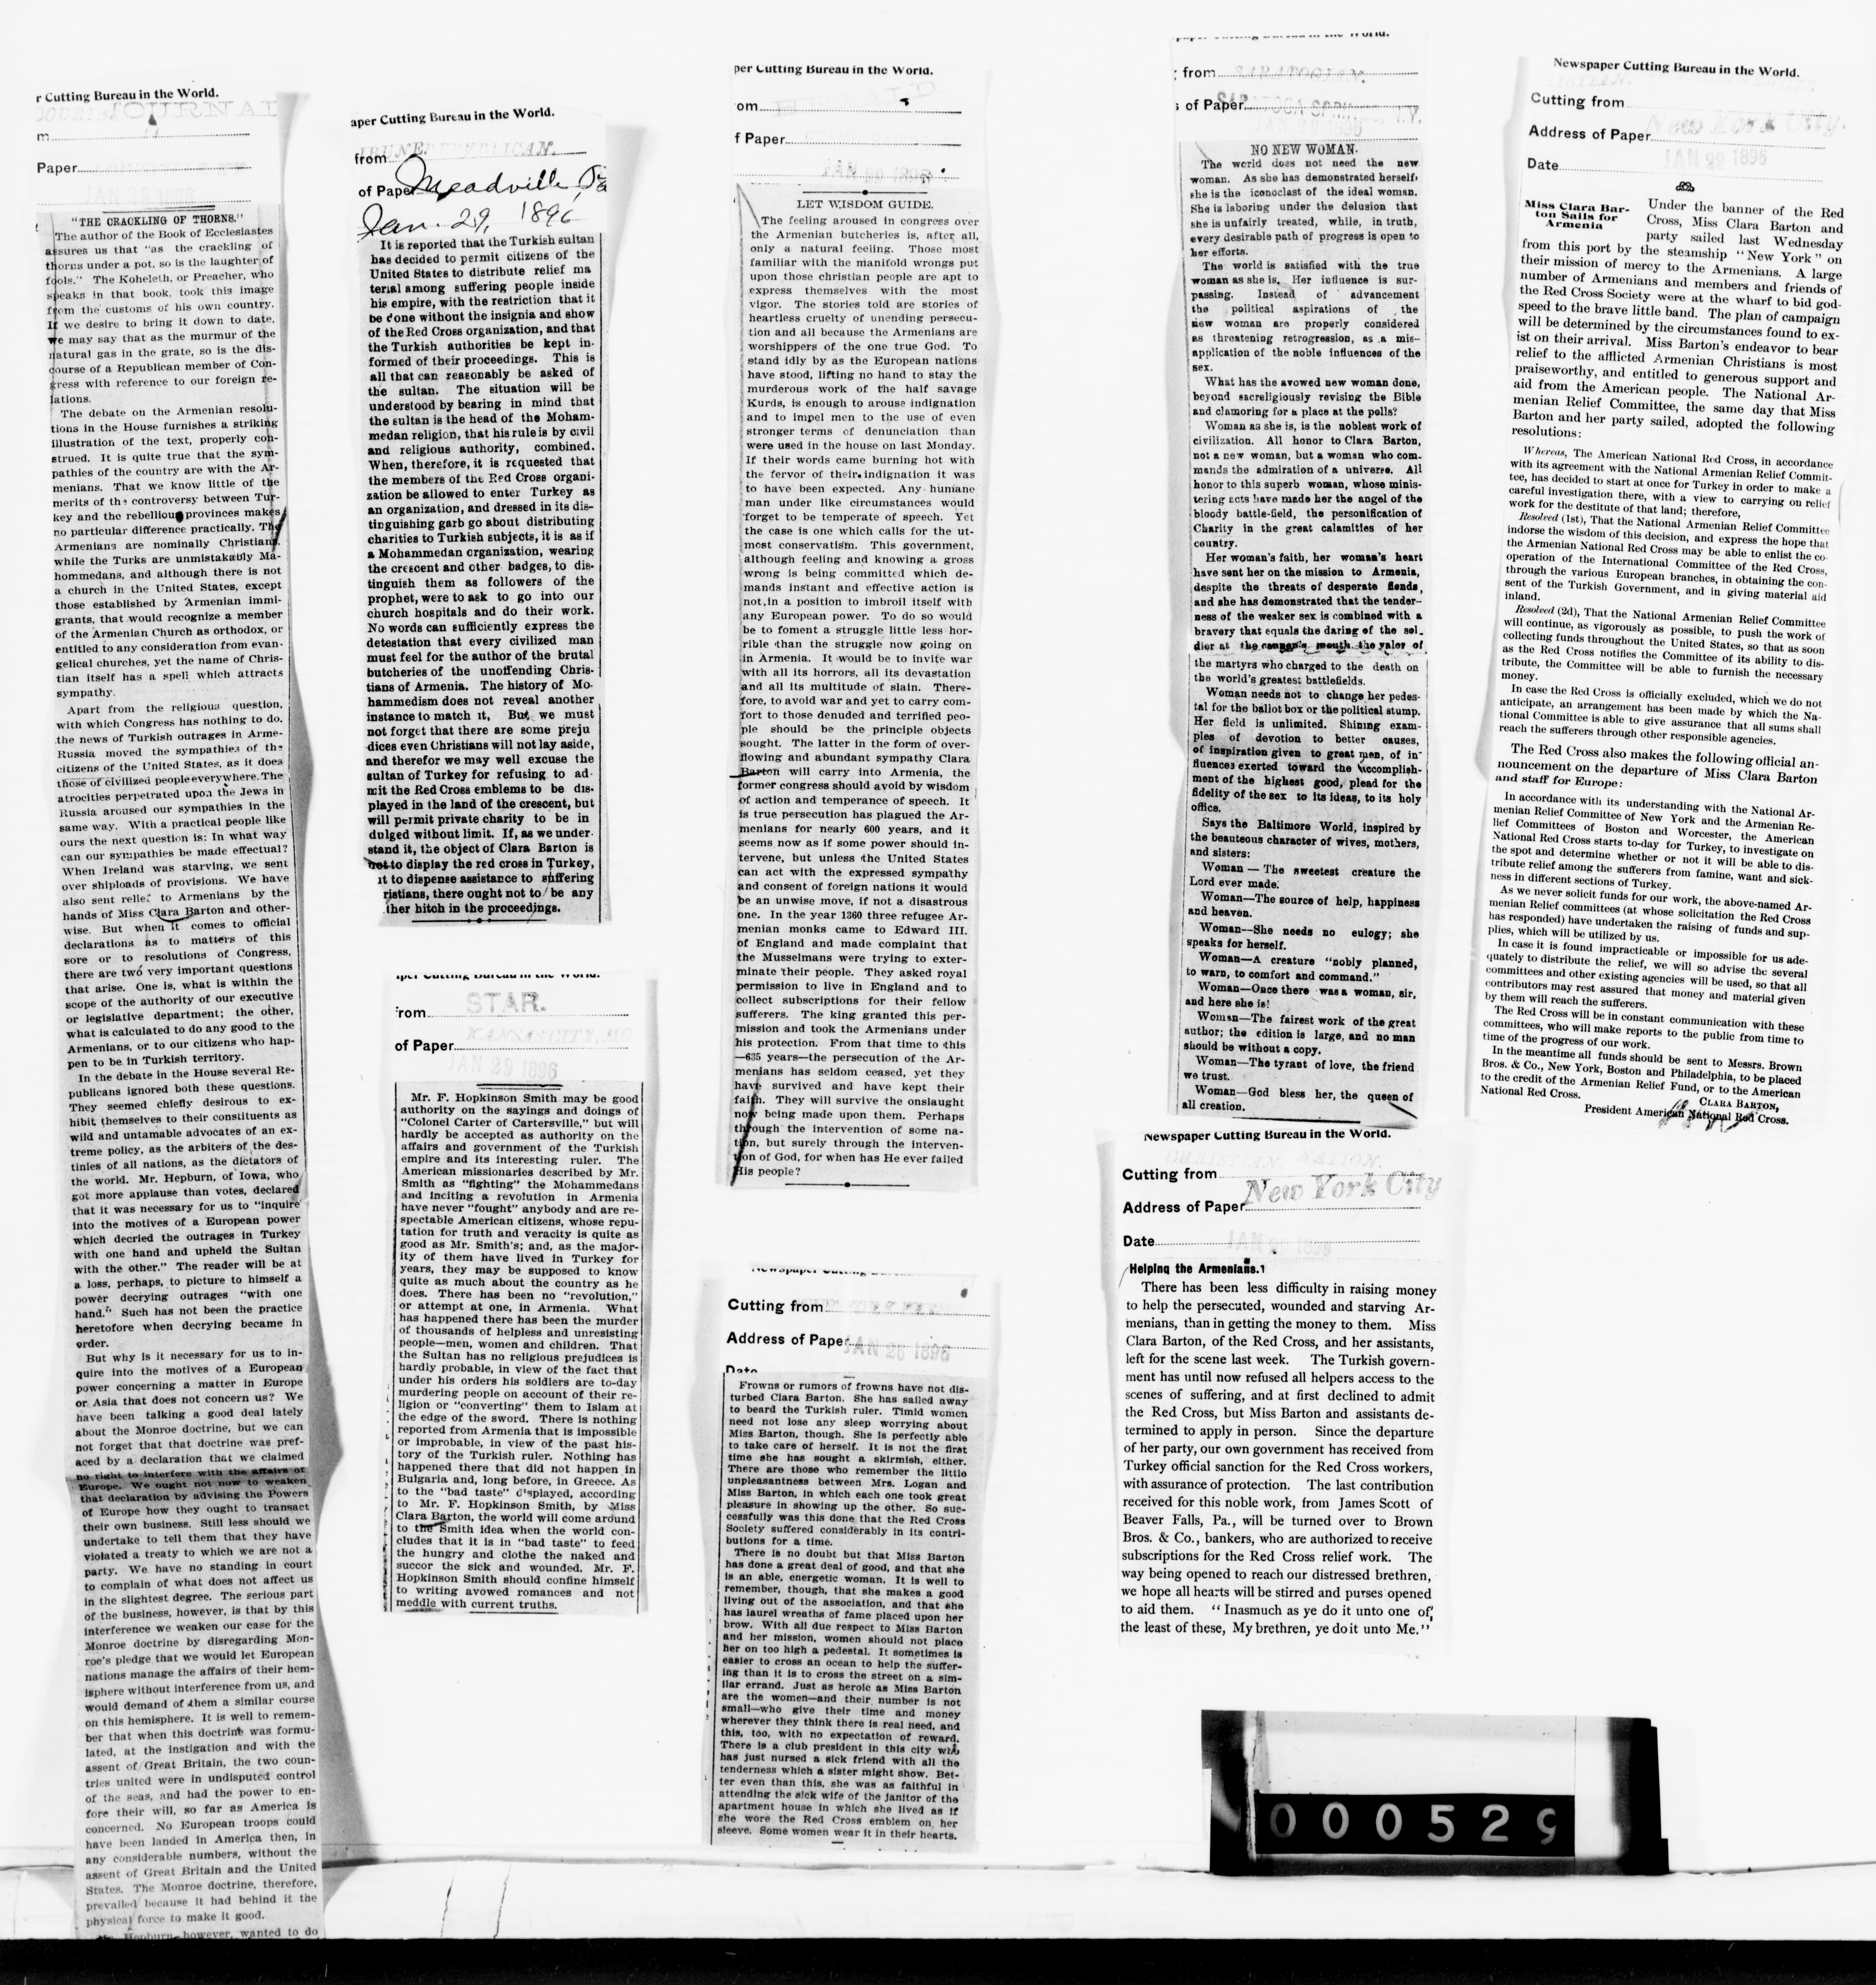 r Cutting Bureau in the World.
m
Paper
JAN 29 1896
"THE CRACKLING OF THORNS."
The author of the Book of Ecclesiastes
assures us that "as the crackling of
thorns under a pot, so is the laughter of
fools." The Koheleth, or Preacher, who
speaks in that book, took this image
from the customs of his own country.
If we desire to bring it down to date,
we may say that as the murmur of the
natural gas in the grate, so is the dis-
course of a Republican member of Con-
gress with reference to our foreign re-
lations.
The debate on the Armenian resolu-
tions in the House furnishes a striking
illustration of the text, properly con-
strued. It is quite true that the sym-
pathies of the country are with the Ar-
menians. That we know little of the
merits of the controversy between Tur-
key and the rebellious provinces makes
no particular difference practically. The
Armenians are nominally Christians,
while the Turks are unmistakably Ma-
hommedans, and although there is not
a church in the United States, except
those established by Armenian immi-
grants, that would recognize a member
of the Armenian Church as orthodox, or
entitled to any consideration from evan-
gelical churches, yet the name of Chris-
tian itself has a spell which attracts
sympathy.
Apart from the religious question,
with which Congress has nothing to do,
the news of Turkish outrages in Arme-
Russia moved the sympathies of the
citizens of the United States, as it does
those of civilized people everywhere. The
atrocities perpetrated upon the Jews in
Russia aroused our sympathies in the
same way. With a practical people like
ours the next question is: In what way
can our sympathies be made effectual?
When Ireland was starving, we sent
over shiploads of provisions. We have
also sent relief to Armenians by the
hands of Miss Clara Barton and other-
wise. But when it comes to official
declarations as to matters of this
sore or to resolutions of Congress,
there are two very important questions
that arise. One is, what is within the
scope of the authority of our executive
or legislative department; the other,
what is calculated to do any good to the
Armenians, or to our citizens who hap-
pen to be in Turkish territory.
In the debate in the House several Re-
publicans ignored both these questions.
They seemed chiefly desirous to ex-
hibit themselves to their constituents as
wild and untamable advocates of an ex-
treme policy, as the arbiters of the des-
tinies of all nations, as the dictators of
the world. Mr. Hepburn, of Iowa, who
got more applause than votes, declared
that it was necessary for us to "inquire
into the motives of a European power
which decried the outrages in Turkey
with one hand and upheld the Sultan
with the other." The reader will be at
a loss, perhaps, to picture to himself a
power decrying outrages "with one
hand." Such has not been the practice
heretofore when decrying became in
order.
But why is it necessary for us to in-
quire into the motives of a European
power concerning a matter in Europe
or Asia that does not concern us? We
have been talking a good deal lately
about the Monroe doctrine, but we can
not forget that that doctrine was pref-
aced by a declaration that we claimed
no right to interfere with the affairs of
Europe. We ought not now to weaken
that declaration by advising the Powers
of Europe how they ought to transact
their own business. Still less should we
undertake to tell them that they have
violated a treaty to which we are not a
party. We have no standing in court
to complain of what does not affect us
in the slightest degree. The serious part
of the business, however, is that by this
interference we weaken our case for the
Monroe doctrine by disregarding Mon-
roe's pledge that we would let European
nations manage the affairs of their hem-
isphere without interference from us, and
would demand of them a similar course
on this hemisphere. It is well to remem-
ber that when this doctrine was formu-
lated, at the instigation and with the
assent of Great Britain, the two coun-
tries united were in undisputed control
of the seas, and had the power to en-
fore their will, so far as America is
concerned. No European troops could
have been landed in America then, in
any considerable numbers, without the
assent of Great Britain and the United
States. The Monroe doctrine, therefore,
prevailed because it had behind it the
physical force to make it good.
Hepburn, however, wanted to do
aper Cutting Bureau in the World.
from REPUBLICAN.
of Paper Meadville, Pa
Jan. 29, 1896
It is reported that the Turkish sultan
has decided to permit citizens of the
United States to distribute relief ma
terial among suffering people inside
his empire, with the restriction that it
be done without the insignia and show
of the Red Cross organization, and that
the Turkish authorities be kept in-
formed of their proceedings. This is
all that can reasonably be asked of
the sultan. The situation will be
understood by bearing in mind that
the sultan is the head of the Moham-
medan religion, that his rule is by civil
and religious authority, combined.
When, therefore, it is requested that
the members of the Red Cross organi-
zation be allowed to enter Turkey as
an organization, and dressed in its dis-
tinguishing garb go about distributing
charities to Turkish subjects, it is as if
a Mohammedan organization, wearing
the crescent and other badges, to dis-
tinguish them as followers of the
prophet, were to ask to go into our
church hospitals and do their work.
No words can sufficiently express the
detestation that every civilized man
must feel for the author of the brutal
butcheries of the unoffending Chris-
tians of Armenia. The history of Mo-
hammedism does not reveal another
instance to match it, But we must
not forget that there are some preju
dices even Christians will not lay aside,
and therefor we may well excuse the
sultan of Turkey for refusing to ad-
mit the Red Cross emblems to be dis-
played in the land of the crescent, but
will permit private charity to be in
dulged without limit. If, as we under-
stand it, the object of Clara Barton is
not to display the red cross in Turkey,
ut to dispense assistance to suffering
ristians, there ought not to be any
ther hitch in the proceedings.
aper Cutting Bureau in the World.
From STAR.
of Paper KANSAS CITY, MO.
JAN 29 1896
Mr. F. Hopkinson Smith may be good
authority on the sayings and doings of
"Colonel Carter of Cartersville," but will
hardly be accepted as authority on the
affairs and government of the Turkish
empire and its interesting ruler. The
American missionaries described by Mr.
Smith as "fighting" the Mohammedans
and inciting a revolution in Armenia
have never "fought" anybody and are re-
spectable American citizens, whose repu-
tation for truth and veracity is quite as
good as Mr. Smith's; and, as the major-
ity of them have lived in Turkey for
years, they may be supposed to know
quite as much about the country as he
does. There has been no "revolution,"
or attempt at one, in Armenia. What
has happened there has been the murder
of thousands of helpless and unresisting
people—men, women and children. That
the Sultan has no religious prejudices is
hardly probable, in view of the fact that
under his orders his soldiers are to-day
murdering people on account of their re-
ligion or "converting" them to Islam at
the edge of the sword. There is nothing
reported from Armenia that is impossible
or improbable, in view of the past his-
tory of the Turkish ruler. Nothing has
happened there that did not happen in
Bulgaria and, long before, in Greece. As
to the "bad taste" displayed, according
to Mr. F. Hopkinson Smith, by Miss
Clara Barton, the world will come around
to the Smith idea when the world con-
cludes that it is in "bad taste" to feed
the hungry and clothe the naked and
succor the sick and wounded. Mr. F.
Hopkinson Smith should confine himself
to writing avowed romances and not
meddle with current truths.
per Cutting Bureau in the World.
om
f Paper
LET WISDOM GUIDE.
The feeling aroused in congress over
the Armenian butcheries is, after all,
only a natural feeling. Those most
familiar with the manifold wrongs put
upon those christian people are apt to
express themselves with the most
vigor. The stories told are stories of
heartless cruelty of unending persecu-
tion and all because the Armenians are
worshippers of the one true God. To
stand idly by as the European nations
have stood, lifting no hand to stay the
murderous work of the half savage
Kurds, is enough to arouse indignation
and to impel men to the use of even
stronger terms of denunciation than
were used in the house on last Monday.
If their words came burning hot with
the fervor of their indignation it was
to have been expected. Any humane
man under like circumstances would
forget to be temperate of speech. Yet
the case is one which calls for the ut-
most conservatism. This government,
although feeling and knowing a gross
wrong is being committed which de-
mands instant and effective action is
not in a position to imbroil itself with
any European power. To do so would
be to foment a struggle little less hor-
rible than the struggle now going on
in Armenia. It would be to invite war
with all its horrors, all its devastation
and all its multitude of slain. There-
fore, to avoid war and yet to carry com-
fort to those denuded and terrified peo-
ple should be the principle objects
sought. The latter in the form of over-
flowing and abundant sympathy Clara
Barton will carry into Armenia, the
former congress should avoid by wisdom
of action and temperance of speech. It
is true persecution has plagued the Ar-
menians for nearly 600 years, and it
seems now as if some power should in-
tervene, but unless the United States
can act with the expressed sympathy
and consent of foreign nations it would
be an unwise move, if not a disastrous
one. In the year 1360 three refugee Ar-
menian monks came to Edward III.
of England and made complaint that
the Musselmans were trying to exter-
minate their people. They asked royal
permission to live in England and to
collect subscriptions for their fellow
sufferers. The king granted this per-
mission and took the Armenians under
his protection. From that time to this
—635 years—the persecution of the Ar-
menians has seldom ceased, yet they
have survived and have kept their
faith. They will survive the onslaught
now being made upon them. Perhaps
through the intervention of some na-
tion, but surely through the interven-
tion of God, for when has He ever failed
His people?
Newspaper Cutting
Cutting from
Address of Paper
JAN 28 1896
Date
Frowns or rumors of frowns have not dis-
turbed Clara Barton. She has sailed away
to beard the Turkish ruler. Timid women
need not lose any sleep worrying about
Miss Barton, though. She is perfectly able
to take care of herself. It is not the first
time she has sought a skirmish, either.
There are those who remember the little
unpleasantness between Mrs. Logan and
Miss Barton, in which each one took great
pleasure in showing up the other. So suc-
cessfully was this done that the Red Cross
Society suffered considerably in its contri-
butions for a time.
There is no doubt but that Miss Barton
has done a great deal of good, and that she
is an able, energetic woman. It is well to
remember, though, that she makes a good
living out of the association, and that she
has laurel wreaths of fame placed upon her
brow. With all due respect to Miss Barton
and her mission, women should not place
her on too high a pedestal. It sometimes is
easier to cross an ocean to help the suffer-
ing than it is to cross the street on a sim-
ilar errand. Just as heroic as Miss Barton
are the women—and their number is not
small—who give their time and money
wherever they think there is real need, and
this, too, with no expectation of reward.
There is a club president in this city who
has just nursed a sick friend with all the
tenderness which a sister might show. Bet-
ter even than this, she was as faithful in
attending the sick wife of the janitor of the
apartment house in which she lived as if
she wore the Red Cross emblem on her
sleeve. Some women wear it in their hearts.
paper Cutting Bureau in the World.
from SARATOGIAN.
s of Paper SARATOGA SPRINGS, N.Y.
NO NEW WOMAN.
The world does not need the new
woman. As she has demonstrated herself,
she is the iconoclast of the ideal woman.
She is laboring under the delusion that
she is unfairly treated, while, in truth,
every desirable path of progress is open to
her efforts.
The world is satisfied with the true
woman as she is. Her influence is sur-
passing. Instead of advancement
the political aspirations of the
new woman are properly considered
as threatening retrogression, as a mis-
application of the noble influences of the
sex.
What has the avowed new woman done,
beyond sacreligiously revising the Bible
and clamoring for a place at the polls?
Woman as she is, is the noblest work of
civilization. All honor to Clara Barton,
not a new woman, but a woman who com-
mands the admiration of a universe. All
honor to this superb woman, whose minis-
tering acts have made her the angel of the
bloody battle-field, the personification of
Charity in the great calamities of her
country.
Her woman's faith, her woman's heart
have sent her on the mission to Armenia,
despite the threats of desperate fiends,
and she has demonstrated that the tender-
ness of the weaker sex is combined with a
bravery that equals the daring of the sol-
dier at the cannon's mouth, the valor of
the martyrs who charged to the death on
the world's greatest battlefields.
Woman needs not to change her pedes-
tal for the ballot box or the political stump.
Her field is unlimited. Shining exam-
ples of devotion to better causes,
of inspiration given to great men, of in-
fluences exerted toward the accomplish-
ment of the highest good, plead for the
fidelity of the sex to its ideas, to its holy
office.
Says the Baltimore World, inspired by
the beauteous character of wives, mothers,
and sisters:
Woman — The sweetest creature the
Lord ever made.
Woman—The source of help, happiness
and heaven.
Woman--She needs no eulogy; she
speaks for herself.
Woman—A creature "nobly planned,
to warn, to comfort and command."
Woman—Once there was a woman, sir,
and here she is!
Woman—The fairest work of the great
author; the edition is large, and no man
should be without a copy.
Woman—The tyrant of love, the friend
we trust.
Woman—God bless her, the queen of
all creation.
Newspaper Cutting Bureau in the World.
Cutting from CHRISTIAN NATION.
Address of Paper New York City
Date
Helping the Armenians.
There has been less difficulty in raising money
to help the persecuted, wounded and starving Ar-
menians, than in getting the money to them. Miss
Clara Barton, of the Red Cross, and her assistants,
left for the scene last week. The Turkish govern-
ment has until now refused all helpers access to the
scenes of suffering, and at first declined to admit
the Red Cross, but Miss Barton and assistants de-
termined to apply in person. Since the departure
of her party, our own government has received from
Turkey official sanction for the Red Cross workers,
with assurance of protection. The last contribution
received for this noble work, from James Scott of
Beaver Falls, Pa., will be turned over to Brown
Bros. & Co., bankers, who are authorized to receive
subscriptions for the Red Cross relief work. The
way being opened to reach our distressed brethren,
we hope all hearts will be stirred and purses opened
to aid them. "Inasmuch as ye do it unto one of
the least of these, My brethren, ye do it unto Me."
Newspaper Cutting Bureau in the World.
Cutting from
Address of Paper New York City.
Date JAN 29 1896
Miss Clara Bar-
ton Sails for
Armenia
Under the banner of the Red
Cross, Miss Clara Barton and
party sailed last Wednesday
from this port by the steamship "New York" on
their mission of mercy to the Armenians. A large
number of Armenians and members and friends of
the Red Cross Society were at the wharf to bid god-
speed to the brave little band. The plan of campaign
will be determined by the circumstances found to ex-
ist on their arrival. Miss Barton's endeavor to bear
relief to the afflicted Armenian Christians is most
praiseworthy, and entitled to generous support and
aid from the American people. The National Ar-
menian Relief Committee, the same day that Miss
Barton and her party sailed, adopted the following
resolutions:
Whereas, The American National Red Cross, in accordance
with its agreement with the National Armenian Relief Commit-
tee, has decided to start at once for Turkey in order to make a
careful investigation there, with a view to carrying on relief
work for the destitute of that land; therefore,
Resolved (1st), That the National Armenian Relief Committee
indorse the wisdom of this decision, and express the hope that
the Armenian National Red Cross may be able to enlist the co-
operation of the International Committee of the Red Cross,
through the various European branches, in obtaining the con-
sent of the Turkish Government, and in giving material aid
inland.
Resolved (2d), That the National Armenian Relief Committee
will continue, as vigorously as possible, to push the work of
collecting funds throughout the United States, so that as soon
as the Red Cross notifies the Committee of its ability to dis-
tribute, the Committee will be able to furnish the necessary
money.
In case the Red Cross is officially excluded, which we do not
anticipate, an arrangement has been made by which the Na-
tional Committee is able to give assurance that all sums shall
reach the sufferers through other responsible agencies.
The Red Cross also makes the following official an-
nouncement on the departure of Miss Clara Barton
and staff for Europe:
In accordance with its understanding with the National Ar-
menian Relief Committee of New York and the Armenian Re-
lief Committees of Boston and Worcester, the American
National Red Cross starts to-day for Turkey, to investigate on
the spot and determine whether or not it will be able to dis-
tribute relief among the sufferers from famine, want and sick-
ness in different sections of Turkey.
As we never solicit funds for our work, the above-named Ar-
menian Relief committees (at whose solicitation the Red Cross
has responded) have undertaken the raising of funds and sup-
plies, which will be utilized by us.
In case it is found impracticable or impossible for us ade-
quately to distribute the relief, we will so advise the several
committees and other existing agencies will be used, so that all
contributors may rest assured that money and material given
by them will reach the sufferers.
The Red Cross will be in constant communication with these
committees, who will make reports to the public from time to
time of the progress of our work.
In the meantime all funds should be sent to Messrs. Brown
Bros. & Co., New York, Boston and Philadelphia, to be placed
to the credit of the Armenian Relief Fund, or to the American
National Red Cross.
CLARA BARTON,
President American National Red Cross.
000529